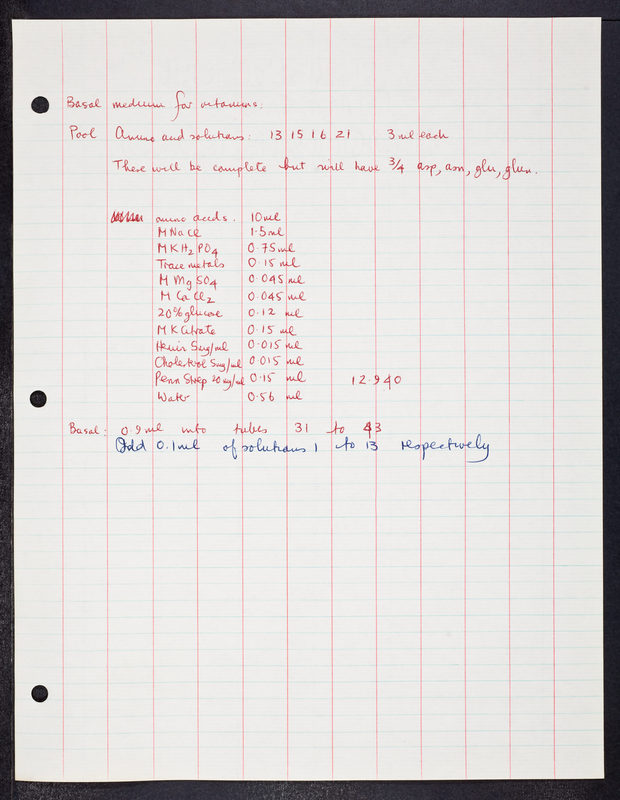 Basal medium for vitamins.
Pool Amino acid solutions: 13 15 16 21 3 ml each
These will be complete but will have 3/4 asp, asn, glu, glun.
amino acids. 10 ml
M NaCl 1.5 ml
M KH2PO4 0.75 ml
Trace metals 0.15 ml
M MgSO4 0.045 ml
M CaCl2 0.045 ml
20% glucose 0.12 ml
M K Citrate 0.15 ml
Hemin 5mg/ml 0.015 ml
Cholesterol 5mg/ml 0.015 ml
Penn Strep 20 mg/ml 0.15 ml 12.940
Water 0.56 ml
Basal: 0.9 ml into tubes 31 to 43
Add 0.1 ml of solutions 1 to 13 respectively